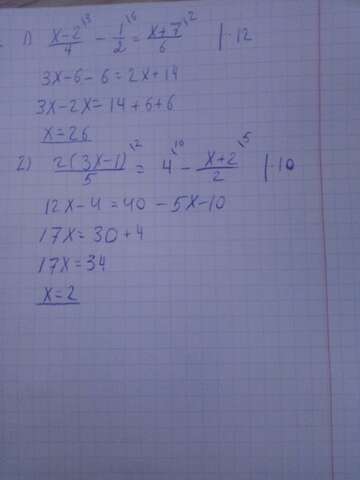 1) \frac{x-2}{4}^{\3} - \frac{1}{2}^{\6} = \frac{x+7}{6}^{\2} | ·12
3x-6-6=2x+14
3x-2x=14+6+6
x=26
2) \frac{2(3x-1)}{5}^{\2} = 4^{\10} - \frac{x+2}{2}^{\5} | ·10
12x-4=40-5x-10
17x=30+4
17x=34
x=2